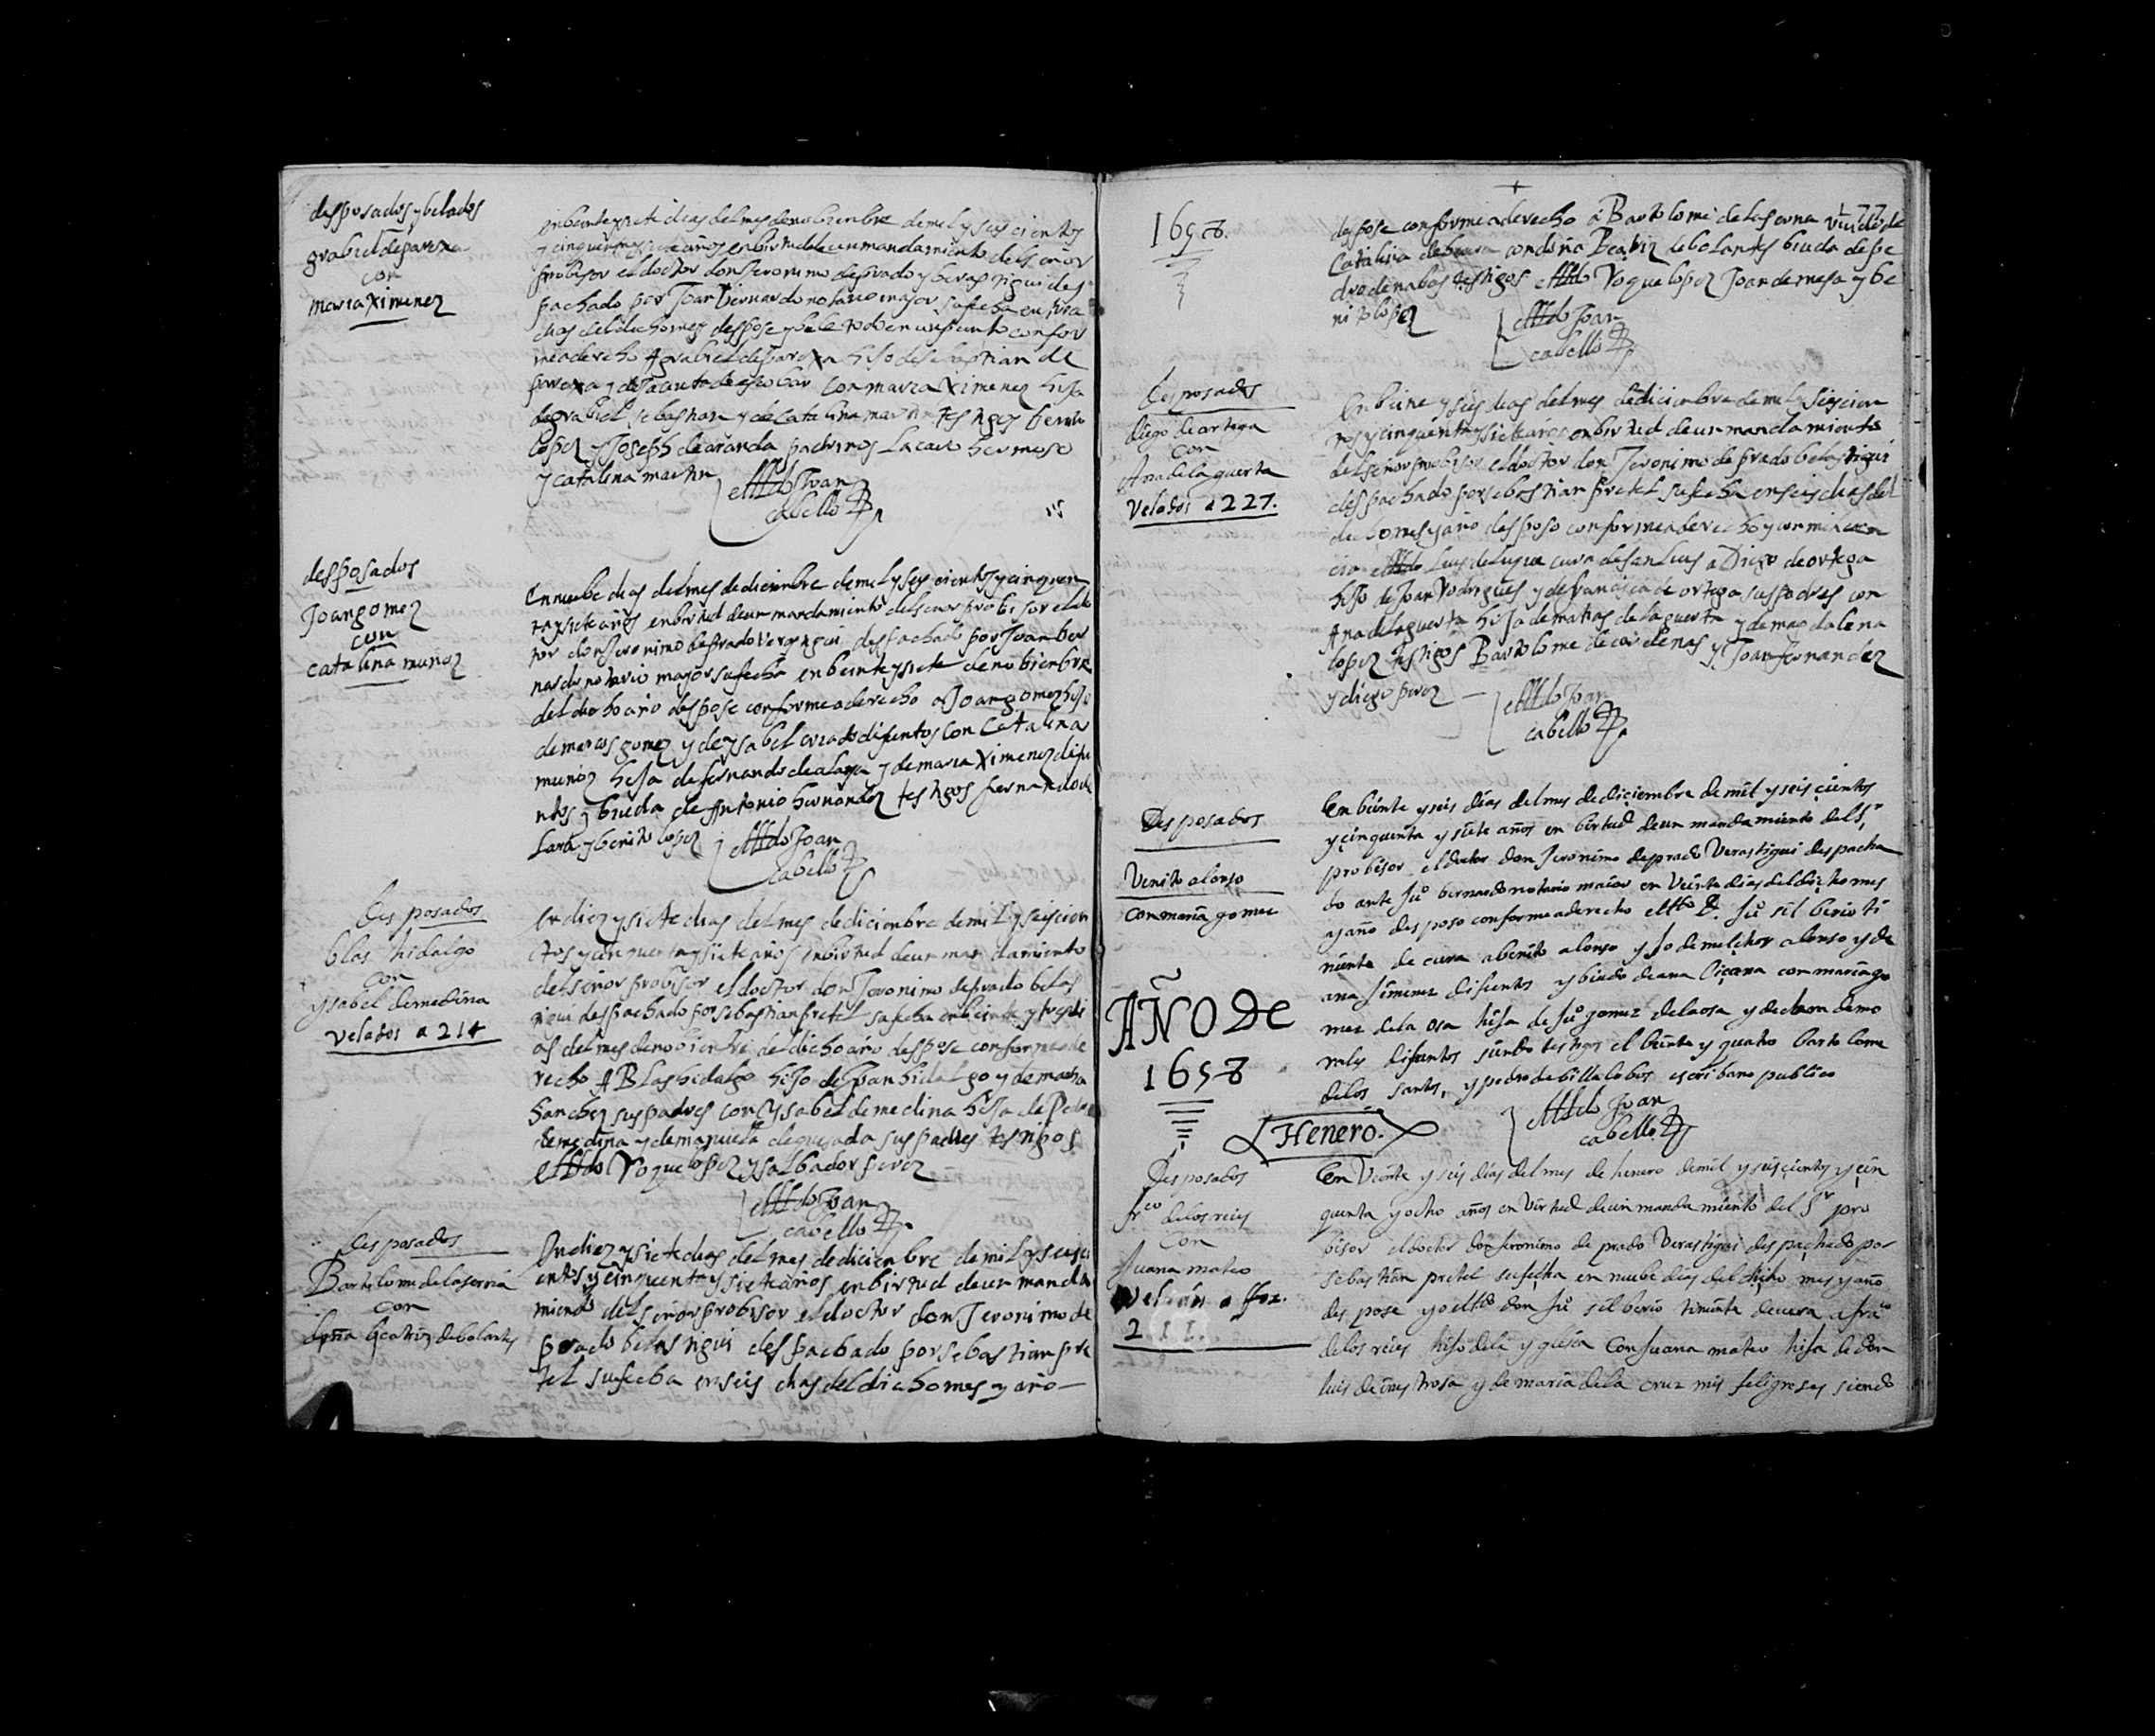 desposados y belados
grabiel de parexa
con
maria Ximenez
en beinte y siete dias del mes de nobienbre de mil y seis cientos
y cinquenta y siete años en birtud de un mandamiento del señor
probisor el doctor don Jeronimo de prado y berastigui des
pachado por Joan bernardo notario major su fecha en
dias del dicho mes despose y bele todo en un punto confor
me a derecho A grabiel de parexa hiJo de sebastian de
parexa y de Jacinta de escobar con maria Ximenez hiJa
de grabiel sebastian y de Catalina martin testigos benito
lopez y Joseph de aranda padrinos Lacaro hermoso
y catalina martin
el lldo Joan
cabello
desposados
Joan gomez
con
catalina muñoz
En nuebe dias del mes de diciembre de mil y seis cientos y cinquen
ta y siete años en birtud de un mandamiento del señor probisor el do
tor don Jeronimo de prado Verastigui despachado por Joan ber
nardo notario major su fecha en beinte y siete de nobienbre
del dicho año despose conforme a derecho a Joan gomez hiJo
de marcos gomez y de ysabel difuntos con Catalina
muñoz hiJa de fernando de alaya y de maria Ximenez difu
ntos y biuda de Antonio hernandez testigos fernando de
Lara y benito lopez
el lldo Joan
cabello
Desposados
blas hidalgo
con
ysabel de medina
Velados a 214
En diez y siete dias del mes de diciembre de mil y seiscien
tos y cinquenta y siete años en birtud de un mandamiento
del señor probisor el doctor don Jeronimo de prado belas
tigui despachado por sebastian pretel su fecha en beinte y tres di
as del mes de nobienbre del dicho año despose conforme a de
recho A Blas hidalgo hiJo de Joan hidalgo y de maria
Sanchez sus padres con Ysabel de medina hiJa de Pedro
de medina y de manuela de quesada sus padres testigos
el lldo Roque lopez y salbador perez
el lldo Joan
cabello
Desposados
Bartolome de laserna
con
doña beatriz de bolantes
En diez y siete dias del mes de diciembre de mil y seisci
entos y cinquenta y siete años en birtud de un manda
miento del señor probisor el doctor don Jeronimo de
prado belastigui despachado por sebastian pre
tel su fecha en seis dias del dicho mes y año
1658.
177
despose conforme a derecho a Bartolome de laserna viudo de
Catalina con doña Beatriz de bolantes biuda de pe
dro de nabas testigos el lldo Roque lopez Joan de mesa y be
nito lopez
el lldo Joan
cabello
Desposados
diego de artega
con
Ana de la guerta
Velados a 227.
En beinte y seis dias del mes de diciembre de mil y seiscien
tos y cinquenta y siete años en birtud de un mandamiento
del señor probisor el doctor don Jeronimo de prado belastigui
despachado por sebastian pretel su fecha en seis dias del
dicho mes y año desposo conforme a derecho y con mi licen
cia el lldo Luis de Luque cura de san Luis a Diego de ortega
hiJo de Joan Rodrigues y de francisca de ortega sus padres con
Ana de la guerta hiJa de matias de la guerta y de madalena
lopez testigos Bartolome de cardenas y Joan fernandez
y diego perez
el lldo Joan
cabello
Desposados
Venito alonso
con maria gomez
En beinte y seis dias del mes de diciembre de mil y seis cientos
y cinquenta y siete años en birtud de un mandamiento del Sr
probisor el doctor don Jeronimo de prado Verastigui despacha
do ante Juo bernardo notario maior en Veinte dias del dicho mes
y año desposo conforme a derecho el lldo D. Juo silberio ti
niente de cura a benito alonso yJo de melchor alonso y de
ana Jimenez difuntos y biudo de ana liçana con maria go
mez de la osa hiJa de Juo gomez de la osa y de de mo
rales difuntos siendo testigos el beinte y quatro bartolome
de los santos, y pedro de billalobos escribano publico
el lldo Joan
cabello
AÑO De
1658
Henero.
Desposados
frco de los reies
con
Juana mateo
Velan a ffox.
211.
En Veinte y seis dias del mes de henero de mil y seiscientos y cin
quenta y ocho años en Virtud de un mandamiento del Sr pro
bisor el doctor don Jeronimo de prado Verastigui despachado por
sebastian pretel su fecha en nuebe dias del dicho mes y año
despose yo el lldo don Juo silberio tiniente de cura a franco
de los reies hijo de la yglesia con Juana mateo hiJa de don
luis de inestrosa y de maria de la cruz mis feligreses siendo